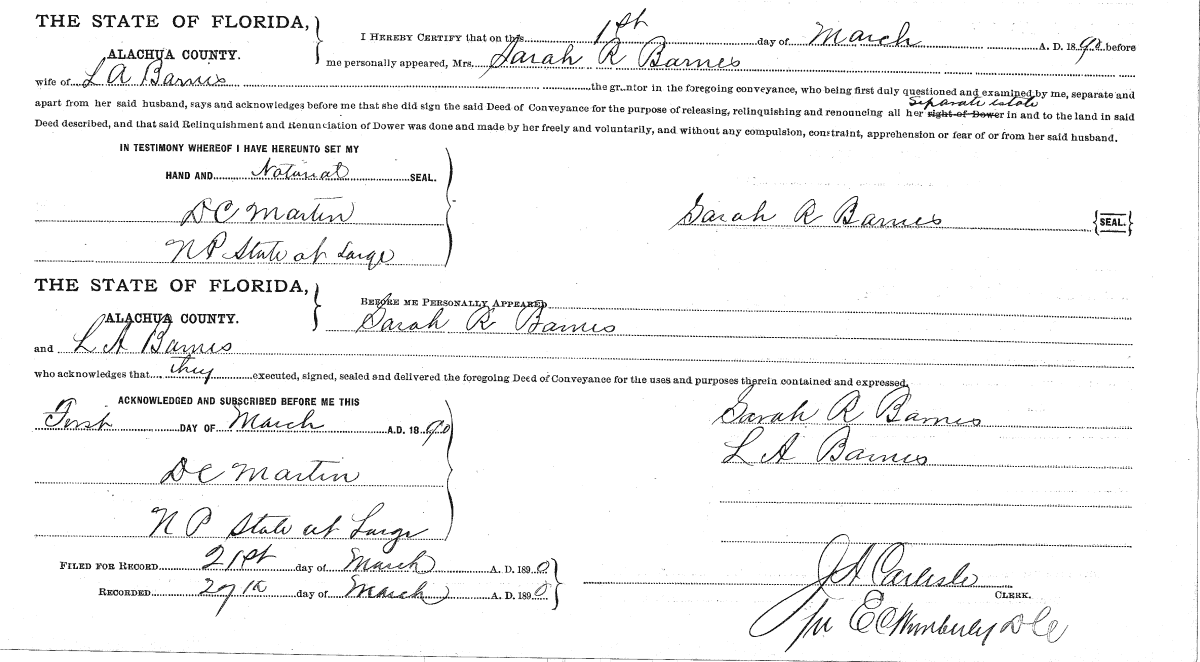 THE STATE OF FLORIDA,
ALACHUA COUNTY.
I HEREBY CERTIFY that on this 1st day of March A. D. 1890 before
me personally appeared, Mrs. Sarah R Barnes
wife of L A Barnes the gr..ntor in the foregoing conveyance, who being first duly questioned and examined by me, separate and
apart from her said husband, says and acknowledges before me that she did sign the said Deed of Conveyance for the purpose of releasing, relinquishing and renouncing all her right of Dower in and to the land in said
separate estate
Deed described, and that said Relinquishment and Renunciation of Dower was done and made by her freely and voluntarily, and without any compulsion, constraint, apprehension or fear of or from her said husband.
IN TESTIMONY WHEREOF I HAVE HEREUNTO SET MY
HAND AND Notarial SEAL.
D C Martin
N P State at Large
Sarah R Barnes {SEAL.}
THE STATE OF FLORIDA,
ALACHUA COUNTY.
BEFORE ME PERSONALLY APPEARED
Sarah R Barnes
and L A Barnes
who acknowledges that they executed, signed, sealed and delivered the foregoing Deed of Conveyance for the uses and purposes therein contained and expressed.
ACKNOWLEDGED AND SUBSCRIBED BEFORE ME THIS
First DAY OF March A.D. 1890
D C Martin
N P State at Large
Sarah R Barnes
L A Barnes
FILED FOR RECORD 21st day of March A. D. 1890
RECORDED 27th day of March A. D. 1890
J A Carlisle
CLERK.
pr E C Wimberly D C